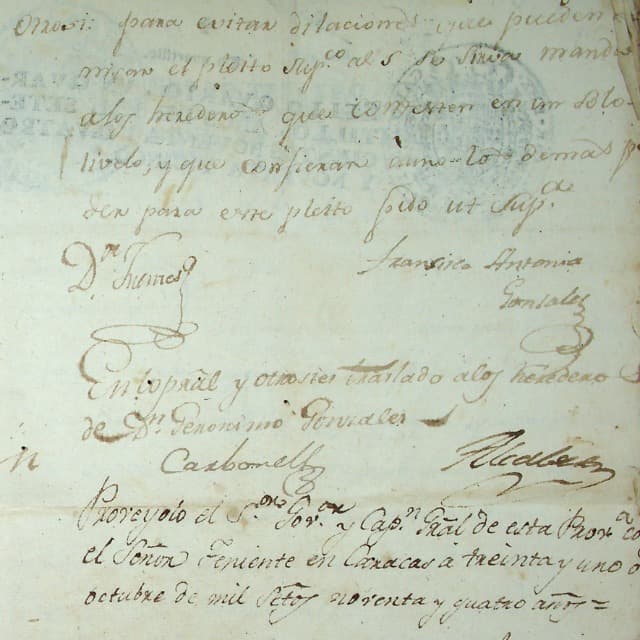 Otrosi: para evitar dilaciones, que pueden
el pleito Sup.co al S. se sirva mandar
a los herederos que contesten en un solo
livelo, y que confieran a uno los demas po
der para este pleito pido ut Sup.
D.r Thumes
Francisca Antonia
Gonzalez
En lo pral y otrosies traslado a los herederos
de Dn. Geronimo Gonzales
Carbonell
Proveyolo el S.or Gov.or y Cap.n Gral de esta Prov.a co
el Señor Teniente en Caracas a treinta y uno
octubre de mil Setos noventa y quatro años=